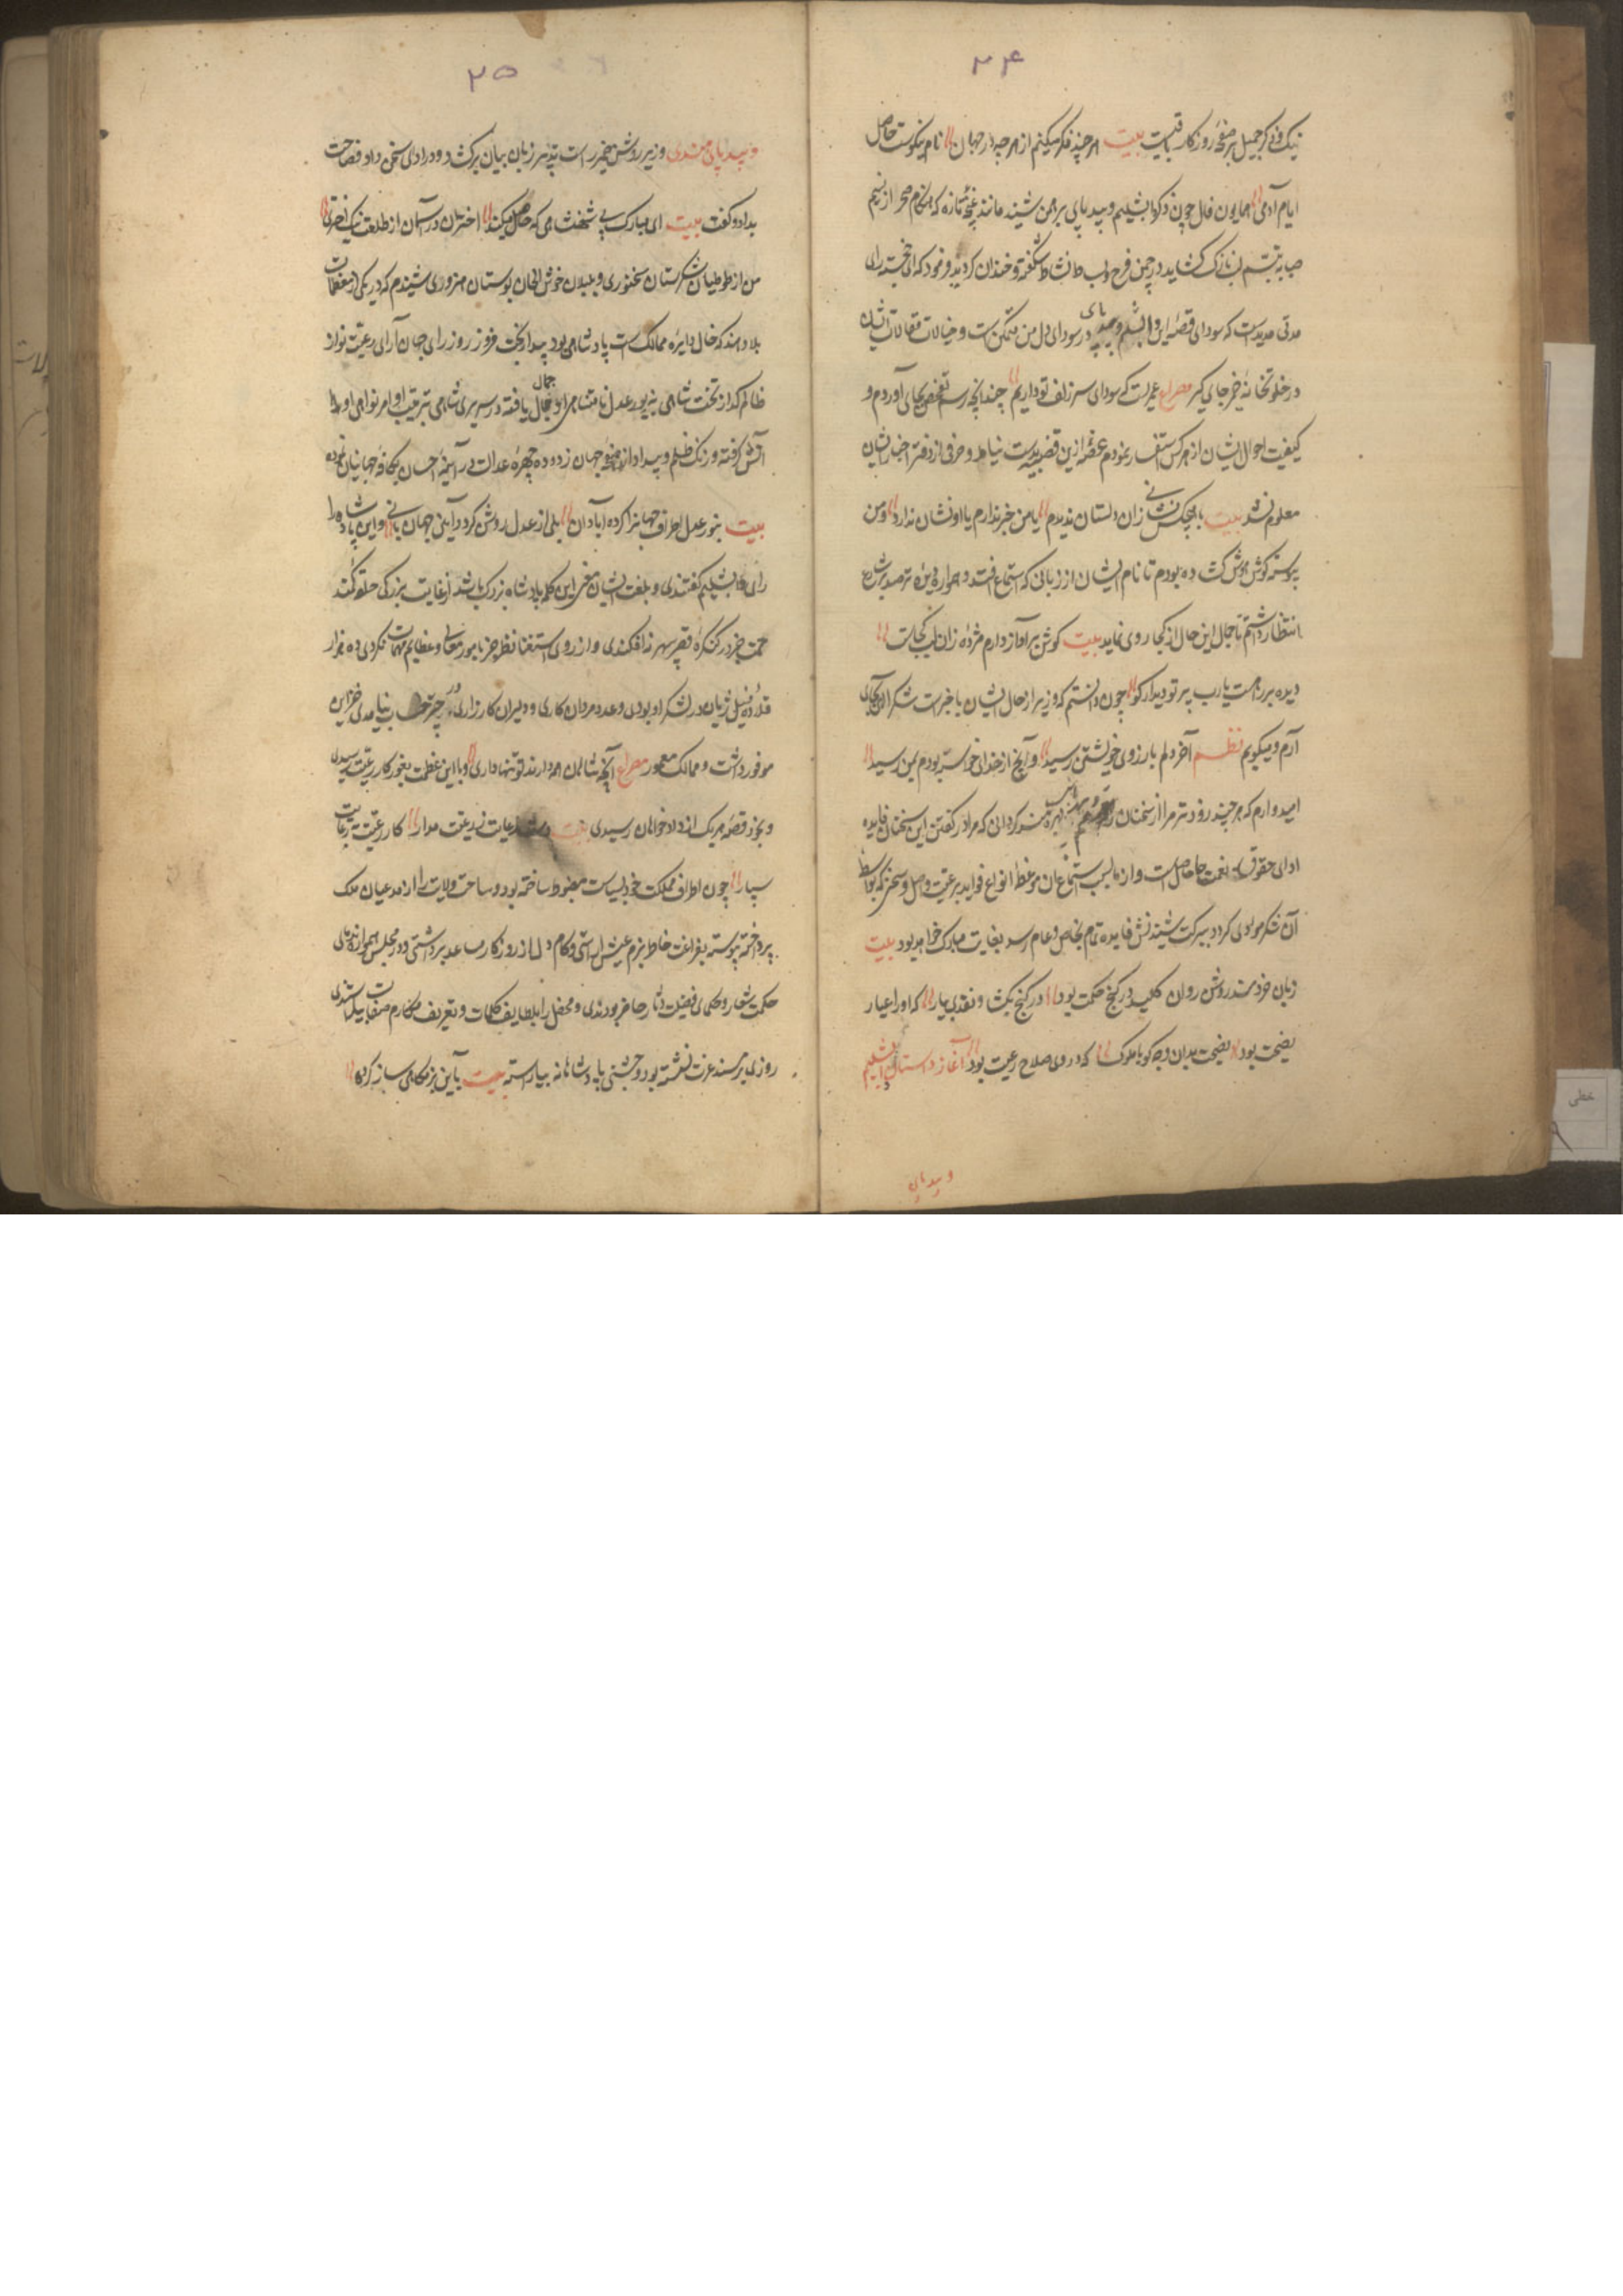 ۲۴
نیک و ذکر جمیل بر صفحه روزکار باقیست بیت هر چند فکر میکنم از هر چه در جهان نام نکوست حاصل
ایام آدمی همایون فال چون ذکر دابشلیم و بیدپای برهمن شنید مانند غنچه تازه که هنکام سحر از نسیم
صبا به تبسم لب نازک کشاید در چمن فرح و نشاط شکفته و خندان کردید و فرمود که ای خجسته رای
مدتی مدیدست که سودای قصه این دابشلیم و بیدپای در سودای دل من متمکن است و خیالات مقالات ایشان
در خلوتخانه ضمیر جای کیر مصراع عمریست که سودای سر زلف تو داریم چندانچه رسم تفحص بجای آوردم و
کیفیت احوال ایشان از هر کس استفسار نمودم حصه ازین قضیه بدست نیامد و حرفی از دفتر اخبار ایشان
معلوم نشد بیت با هیچکس نشانی زان دلستان ندیدم یا من خبر ندارم یا او نشان ندارد و من
پیوسته کوش هوش کشاده بودم تا نام ایشان از زبانی که استماع افتد و همواره دیده ترصد بر شارع
انتظار داشتم تا جمال این حال از کجا روی نماید بیت کوش بر آواز دارم مژده زان لب کجاست
دیده بر راهست یارب پرتو دیدار کو چون دانستم که وزیر از حال ایشان با خبرست شکر الهی بجای
آرم و میکویم نظم آخر دلم بارزوی خویشتن رسید و آنچ از خدای خواسته بودم بمن رسید
امیدوارم که هر چند زودتر مرا از سخنان رای و برهمن بهره مند کردانی که مراد در کفتن این سخنان فایده
ادای حقوق نعمت ما حاصل است و از ما بسبب استماع آن مواعظ انواع فواید برعیت واصل و سخنی که بواسطه
آن شکر مودی کردد ببرکت شنیدنش فایده تمام بخاص و عام رسد بغایت مبارک خواهد بود بیت
زبان خردمند روشن روان کلید در کنج حکمت بود در کنج بکشا و نقدی بیار که او را عیار
نصیحت بود نصیحت بدان وجه کو با ملوک که در وی صلاح رعیت بود آغاز داستان دابشلیم
و بیدپای
۲۵
و بیدپای هندی وزیر روشن ضمیر راست تدبیر زبان بیان برکشاد و در ادای سخن داد فصاحت
بداد و کفت بیت ای مبارک پی شهنشاهی که حاصل میکنند اختران در آسمان از طلعتت نیک اختری
من از طوطیان شکرستان سخنوری و بلبلان خوش الحان بوستان هنروری شنیدم که در یکی از معظمات
بلاد هند که خال دایره ممالک است پادشاهی بود بیدار بخت فیروز روز رای جهان آرای رعیت نواز
ظالم کداز تخت شاهی بزیور عدل نامتناهی او جمال یافته و سریر شاهی بترتیب اوامر و نواهی او
آتش کرفته و زنک ظلم و بیداد از صفحه جهان زدوده چهره عدالت در آینه احسان بکافه جهانیان نموده
بیت بنور عدل اطراف جهانرا کرده آبادان بلی از عدل روشن کردد آیین جهان بانی و این پادشاه را
رای دابشلیم کفتندی و بلغت ایشان معنی این کلمه پادشاه بزرک باشد از غایت بزرکی حلقه کمند
همت جز در کنکره قصر سپهر نه افکندی و از روی استغنا نظر جز بامور معالی و عظایم مهمات نکردی ده هزار
قلاده فیل ژیان در لشکر او بودی و عدد مردان کاری و دلیران کارزاری در حیز حساب نیامدی خزاین
موفور داشت و ممالک معمور مصراع آنچه شاهان همه دارند تو تنها داری و با این عظمت بغور کار رعیت رسیدی
و بخود قصه هر یک از دادخواهان رسیدی بیت دست رعایت ز رعیت مدار کار رعیت برعایت
سپار چون اطراف مملکت خود بسیاست مضبوط ساخته بود و ساحت ولایت را از مدعیان ملک
پرداخته پیوسته بفراغت خاطر بزم عیش آراستی و کام دل از روزکار مساعد برداشتی و در مجلس همواره ندمای
حکمت شعار و حکمای فضیلت دثار حاضر بودندی و محفل را بلطایف کلمات و تعریف مکارم صفات بیاراستندی
روزی بر مسند عزت نشسته بود و جشنی پادشاهانه بیاراسته بیت بآیین بزمکاهی ساز کرده
خطی